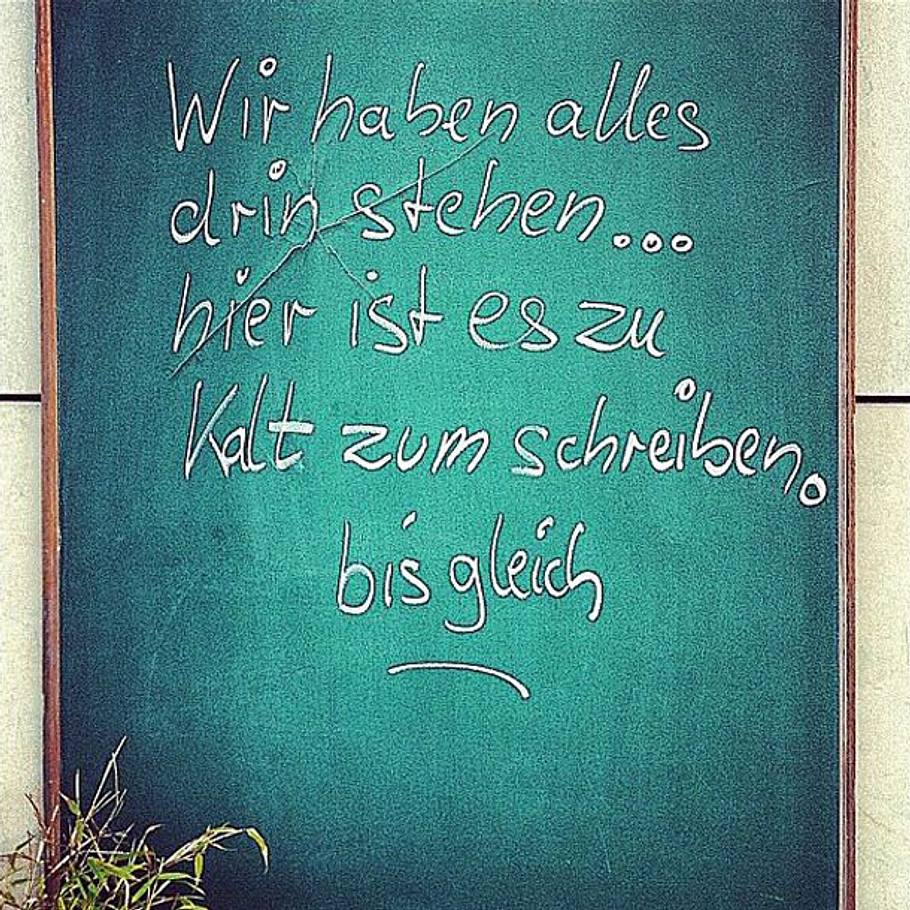 Wir haben alles
drin stehen...
hier ist es zu
Kalt zum schreiben.
bis gleich